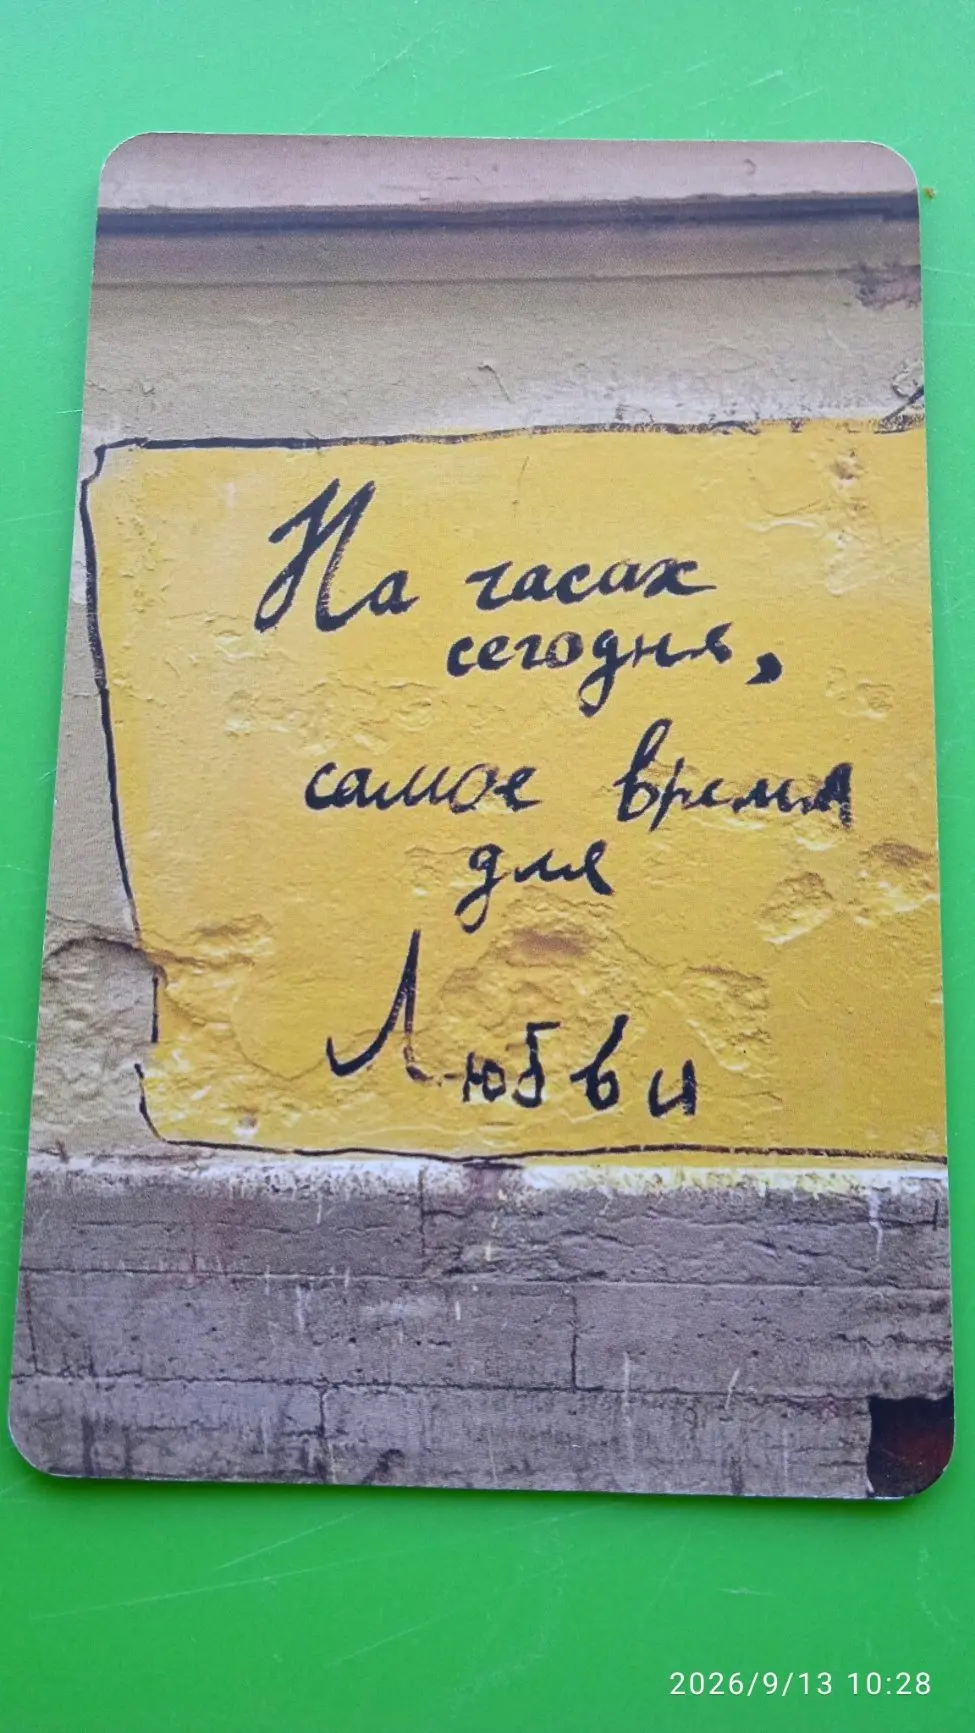 На часах
сегодня,
самое время
для
Любви
2026/9/13 10:28